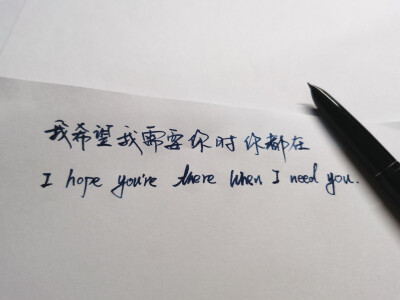 我希望我需要你时你都在
I hope you're there when I need you.